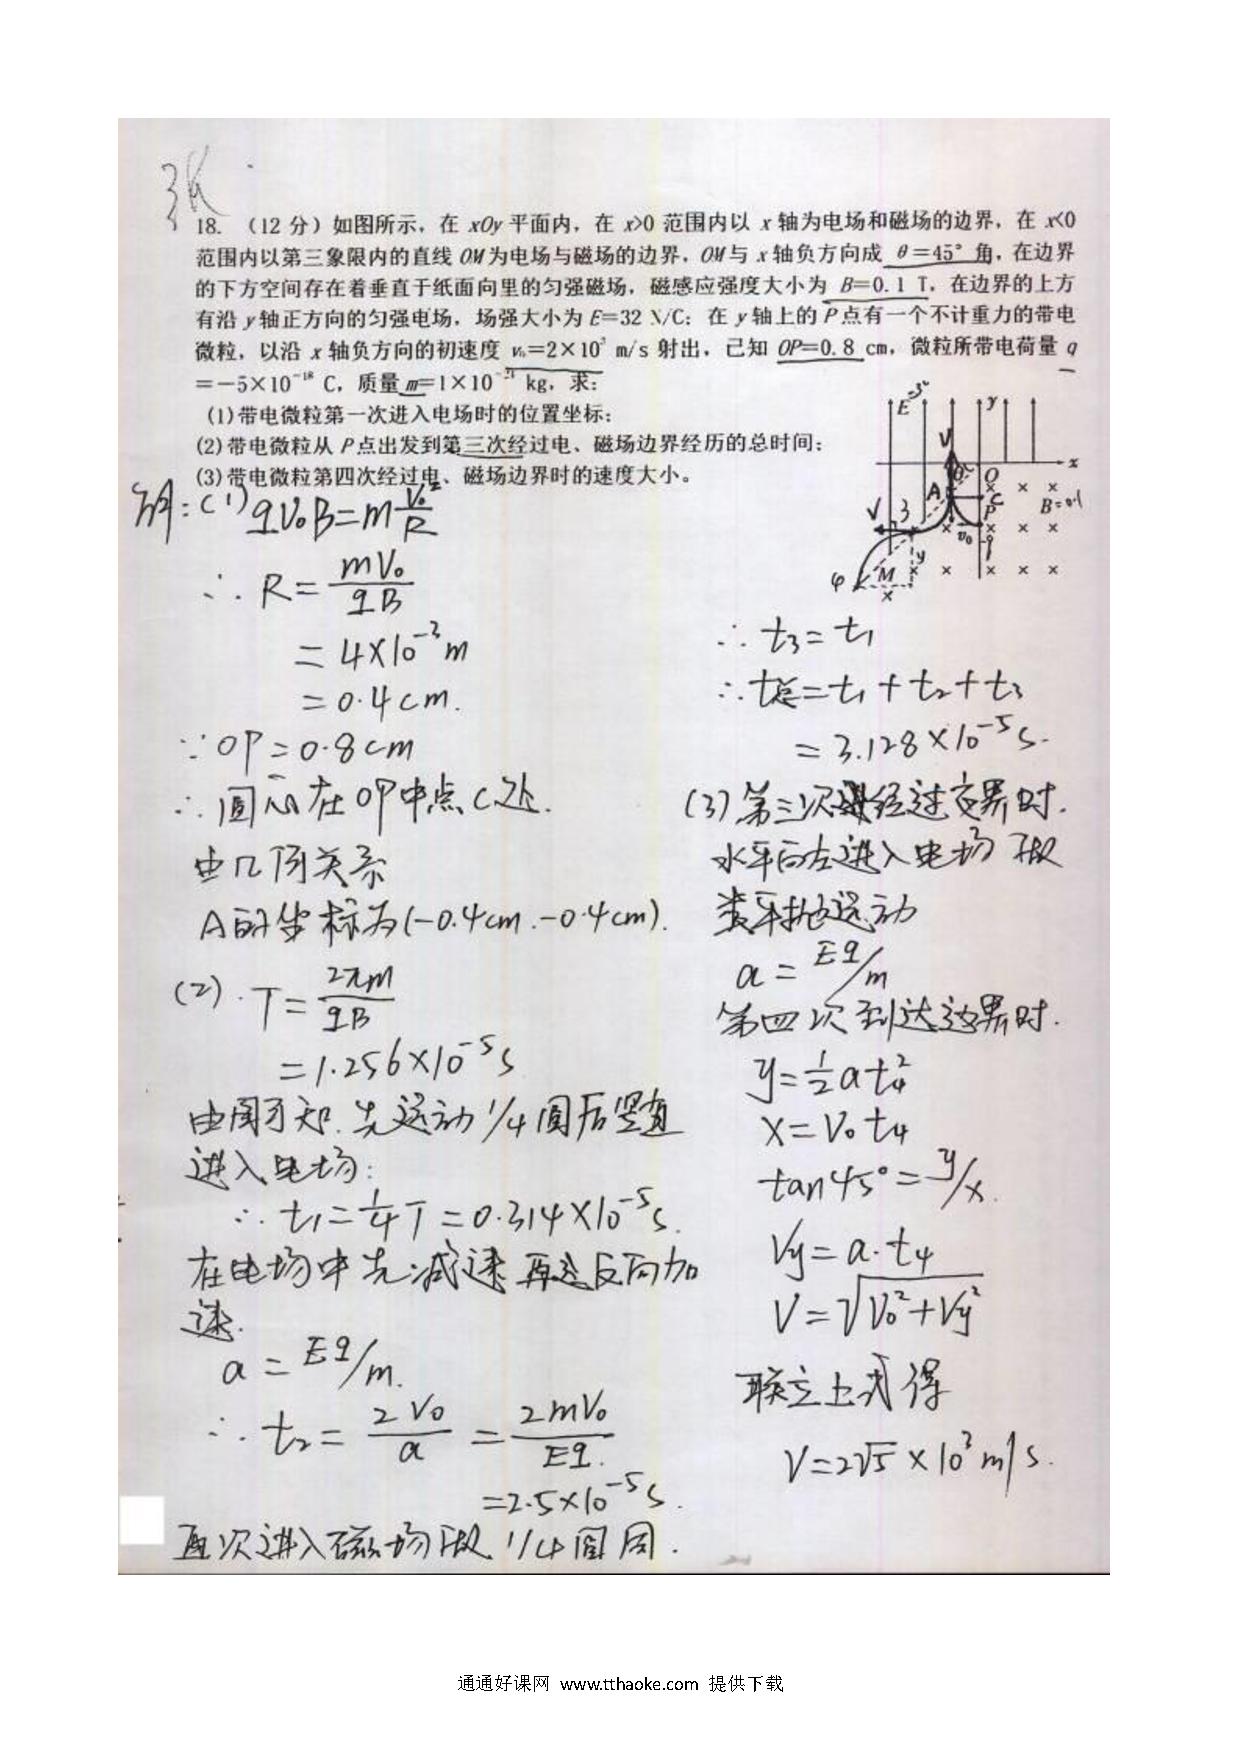 张
18. （12 分）如图所示，在 xOy 平面内，在 x>0 范围内以 x 轴为电场和磁场的边界，在 x<0
范围内以第三象限内的直线 OM 为电场与磁场的边界，OM 与 x 轴负方向成 θ=45° 角，在边界
的下方空间存在着垂直于纸面向里的匀强磁场，磁感应强度大小为 B=0.1 T，在边界的上方
有沿 y 轴正方向的匀强电场，场强大小为 E=32 N/C；在 y 轴上的 P 点有一个不计重力的带电
微粒，以沿 x 轴负方向的初速度 v₀=2×10³ m/s 射出，己知 OP=0.8 cm，微粒所带电荷量 q
=−5×10⁻¹⁸ C，质量 m=1×10⁻²¹ kg，求：
(1)带电微粒第一次进入电场时的位置坐标；
(2)带电微粒从 P 点出发到第三次经过电、磁场边界经历的总时间；
(3)带电微粒第四次经过电、磁场边界时的速度大小。
E y
V
x
θ O
A C
B=0.1
V 3 P
v₀
y
φ M
x
解：(1) qV₀B=m V₀²/R
∴ R= mV₀/qB
= 4×10⁻³ m
= 0.4cm.
∵ OP=0.8cm
∴ 圆心在OP中点C处.
由几何关系
A的坐标为(-0.4cm.-0.4cm).
(2). T= 2πm/qB
=1.256×10⁻⁵s
由图可知.先运动1/4圆后竖直
进入电场：
∴ t₁=1/4T=0.314×10⁻⁵s.
在电场中先减速再反向加
速.
a= Eq/m.
∴ t₂= 2V₀/a = 2mV₀/Eq.
=2.5×10⁻⁵s.
再次进入磁场做 1/4圆周.
∴ t₃=t₁
∴ t总=t₁+t₂+t₃
=3.128×10⁻⁵s.
(3)第三次经过边界时.
水平向左进入电场做
类平抛运动
a= Eq/m
第四次到达边界时.
y=1/2at₄²
x=V₀t₄
tan45°=y/x.
Vy=a·t₄
V=√(V₀²+Vy²)
联立上式得
V=2√5×10³m/s.
通通好课网 www.tthaoke.com 提供下载